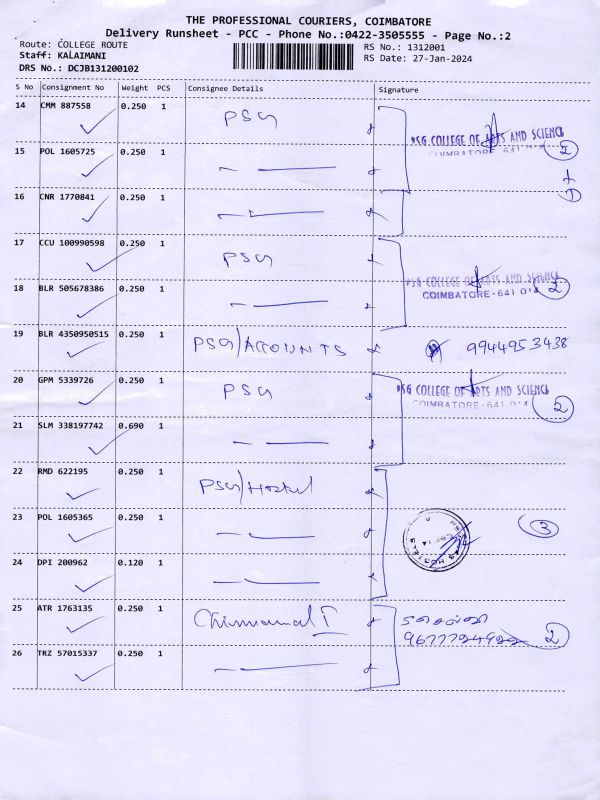 THE PROFESSIONAL COURIERS, COIMBATORE
Delivery Runsheet - PCC - Phone No.:0422-3505555 - Page No.:2
Route: COLLEGE ROUTE RS No.: 1312001
Staff: KALAIMANI RS Date: 27-Jan-2024
DRS No.: DCJB131200102
S No Consignment No Weight PCS Consignee Details Signature
14 CMM 887558 0.250 1 PSG
PSG COLLEGE OF ARTS AND SCIENCE
COIMBATORE - 641 2
15 POL 1605725 0.250 1
+
1
16 CNR 1770841 0.250 1
17 CCU 100990598 0.250 1 PSG
PSG COLLEGE OF ARTS AND SCIENCE
COIMBATORE - 641 014 2
18 BLR 505678386 0.250 1
19 BLR 4350950515 0.250 1 PSG/ACCOUNTS 9944953438
20 GPM 5339726 0.250 1 PSG
PSG COLLEGE OF ARTS AND SCIENCE
COIMBATORE - 641 014 2
21 SLM 338197742 0.690 1
22 RMD 622195 0.250 1 PSG/Hostel
23 POL 1605365 0.250 1 3
24 DPI 200962 0.120 1
25 ATR 1763135 0.250 1
2
26 TRZ 57015337 0.250 1